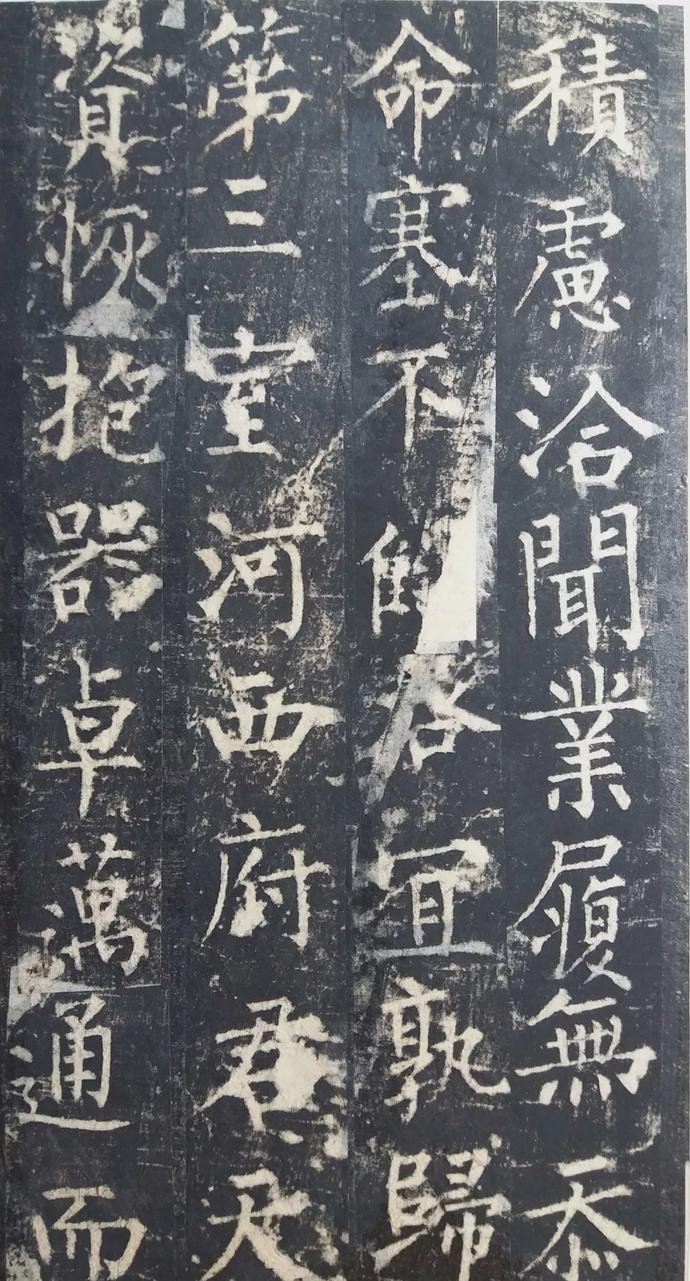 積慮洽聞業履無忝
命塞不的啓冝孰歸
第三室河西府君天
資恢抱器卓萬通而